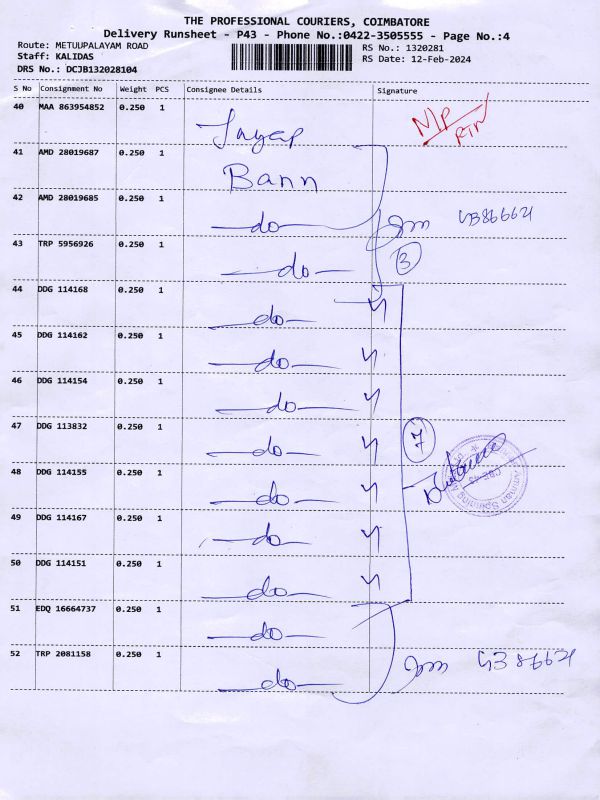 THE PROFESSIONAL COURIERS, COIMBATORE
Delivery Runsheet - P43 - Phone No.:0422-3505555 - Page No.:4
Route: METUUPALAYAM ROAD
RS No.: 1320281
Staff: KALIDAS
RS Date: 12-Feb-2024
DRS No.: DCJB132028104
S No Consignment No Weight PCS Consignee Details Signature
40 MAA 863954852 0.250 1
41 AMD 28019687 0.250 1 Bann
42 AMD 28019685 0.250 1 -do-
43 TRP 5956926 0.250 1 -do- 3
44 DDG 114168 0.250 1 -do-
45 DDG 114162 0.250 1 -do-
46 DDG 114154 0.250 1 -do-
47 DDG 113832 0.250 1 -do- 7
48 DDG 114155 0.250 1 -do-
49 DDG 114167 0.250 1 -do-
50 DDG 114151 0.250 1 -do-
51 EDQ 16664737 0.250 1 -do-
52 TRP 2081158 0.250 1 -do-